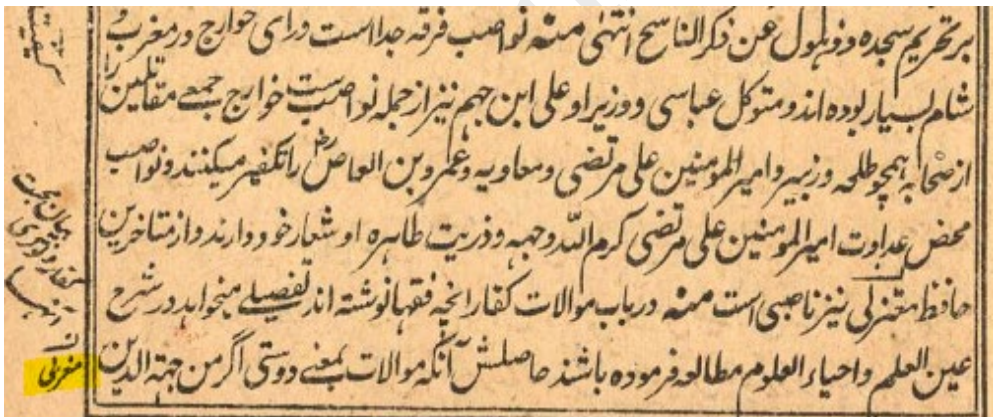 بر تحریم سجده و ذبول عن ذکر الناسخ انتهی منه نواصب فرقه جدا است ورای خوارج و در مغرب
شام بسیار بوده اند و متوکل عباسی و وزیر او علی ابن جهم نیز از جمله نواصب ست خوارج جمعے مقاتلین را
از صحابه همچو طلحه و زبیر و امیر المومنین علی مرتضی و معاویه و عمرو بن العاص را تکفیر میکنند و نواصب
محض عداوت امیر المومنین علی مرتضی کرم الله وجهه و ذریت طاهره او شعار خود دارند و از متاخرین
حافظ مغزلی نیز ناصبی است منه در باب موالات کفار انچه فقها نوشته اند تفصیلے میخواهد در شرح
عین العلم و احیاء العلوم مطالعه فرموده باشند حاصلش آنکه موالات بمعنے دوستی اگر من جهة الدین
بیان محبت
کفار و دوستی
مغربی